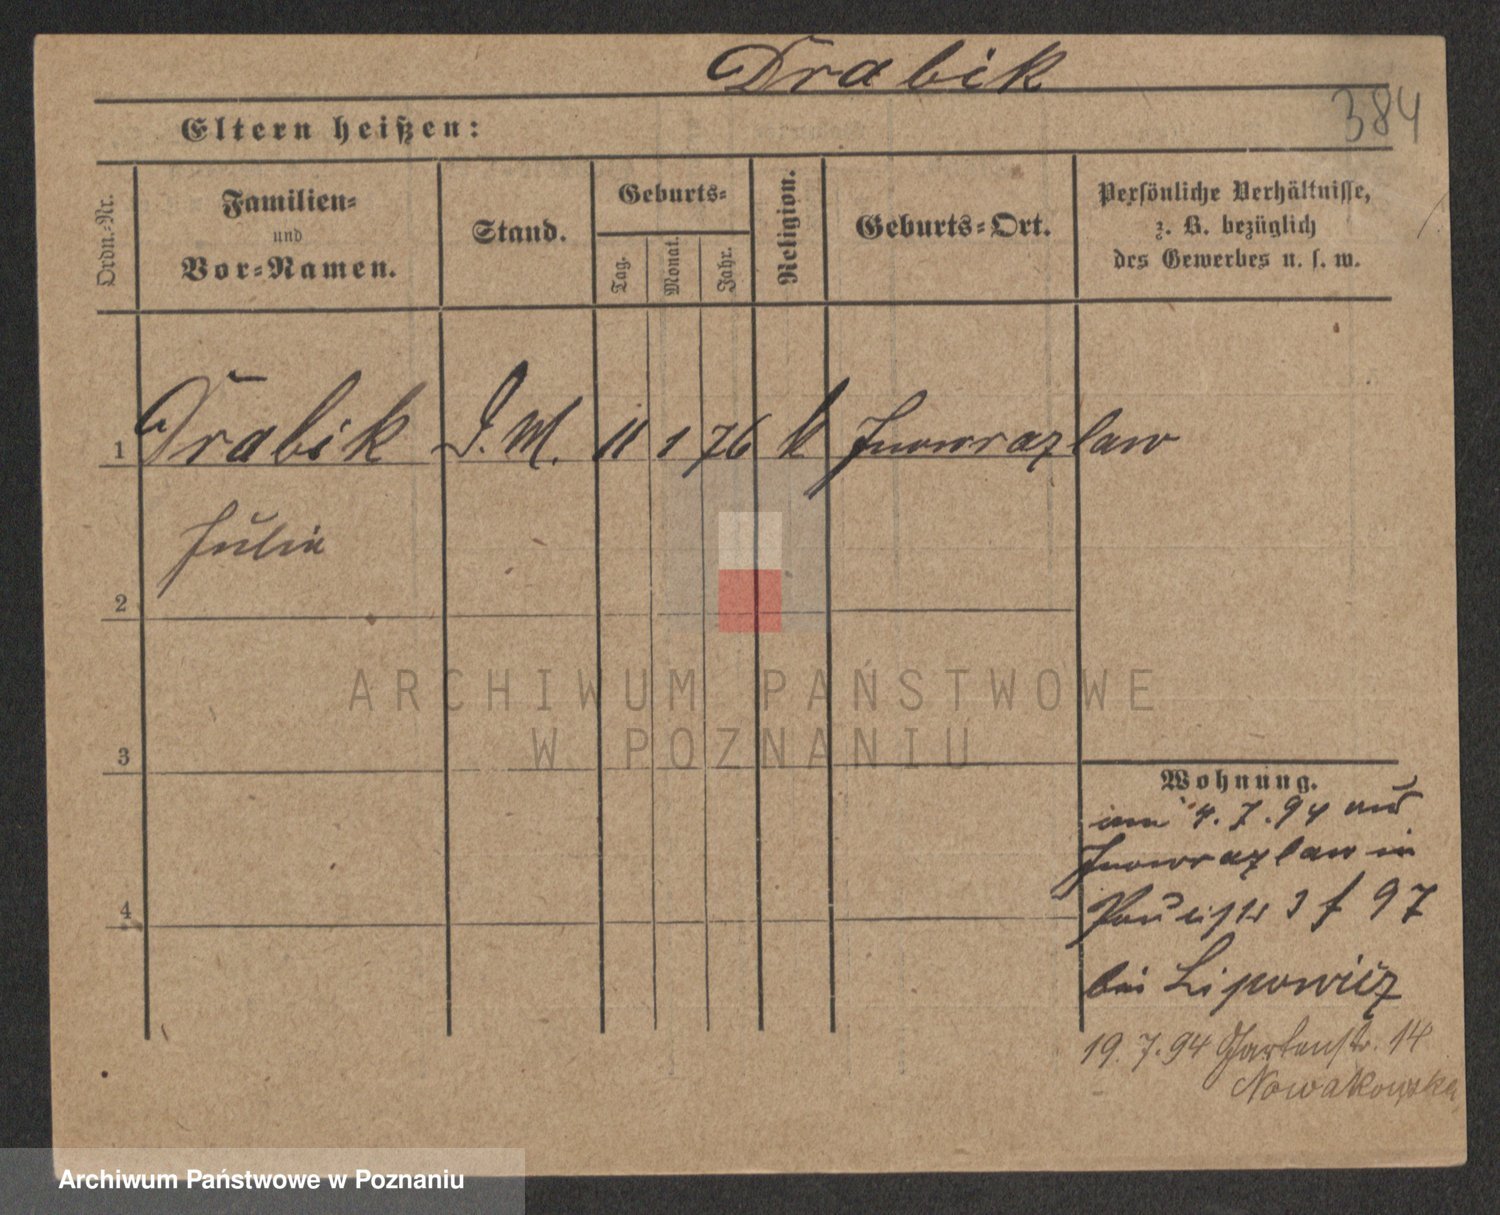 Drabik
384
Eltern heißen:
Ordn.-Nr.
Familien-
und
Vor-Namen.
Stand.
Geburts-
Tag.
Monat.
Jahr.
Religion.
Geburts-Ort.
Persönliche Verhältnisse,
z. B. bezüglich
des Gewerbes u. s. w.
1 Drabik D. M. 11 1 76 k Inowrazlaw
Julie
2
3
4
Wohnung.
am 4. 7. 94 aus
Inowrazlaw in
97
bei Lipowicz
19. 7. 94 Gartenstr. 14
Nowakowska
ARCHIWUM PAŃSTWOWE
W POZNANIU
Archiwum Państwowe w Poznaniu